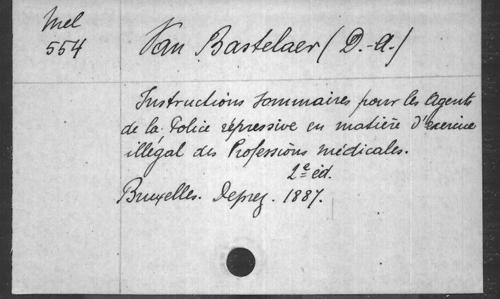 Mel
554
Van Bastelaer (D.-A.)
Instructions sommaires pour les Agents
de la Police répressive en matière d'exercice
illégal des Professions médicales.
2e éd.
Bruxelles. Deprez. 1887.